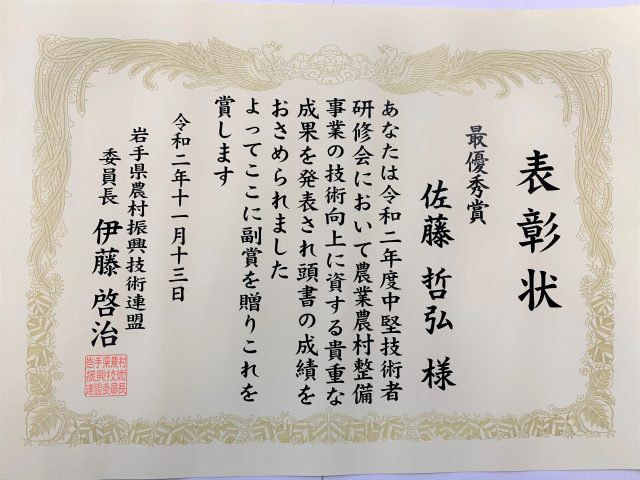 表彰状
最優秀賞
佐藤 哲弘 様
あなたは令和二年度中堅技術者
研修会において農業農村整備
事業の技術向上に資する貴重な
成果を発表され頭書の成績を
おさめられました
よってここに副賞を贈りこれを
賞します
令和二年十一月十三日
岩手県農村振興技術連盟
委員長 伊藤 啓治
岩手県農村
振興技術
連盟委員長